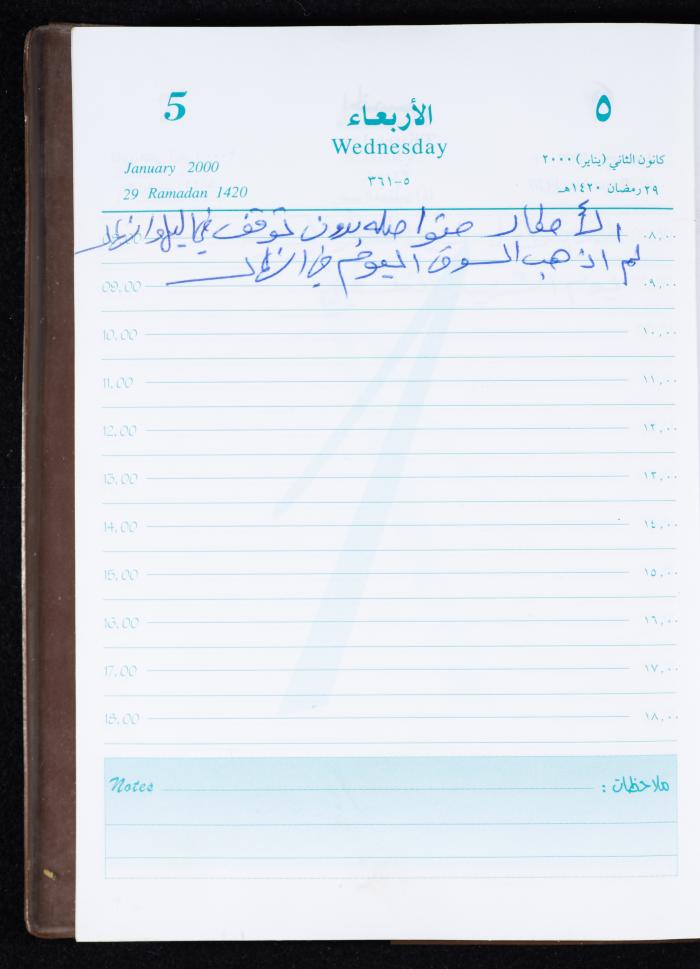 5
الأربعاء
٥
Wednesday
January 2000
كانون الثاني (يناير) ٢٠٠٠
٥-٣٦١
29 Ramadan 1420
٢٩ رمضان ١٤٢٠هـ
الأمطار متواصله بدون توقف في اليل وانهار
لم اذهب السوق اليوم في انهار
٠٨,٠٠
09.00 ٠٩,٠٠
10.00 ١٠,٠٠
11.00 ١١,٠٠
12.00 ١٢,٠٠
13.00 ١٣,٠٠
14.00 ١٤,٠٠
15.00 ١٥,٠٠
16.00 ١٦,٠٠
17.00 ١٧,٠٠
18.00 ١٨,٠٠
Notes ملاحظات :